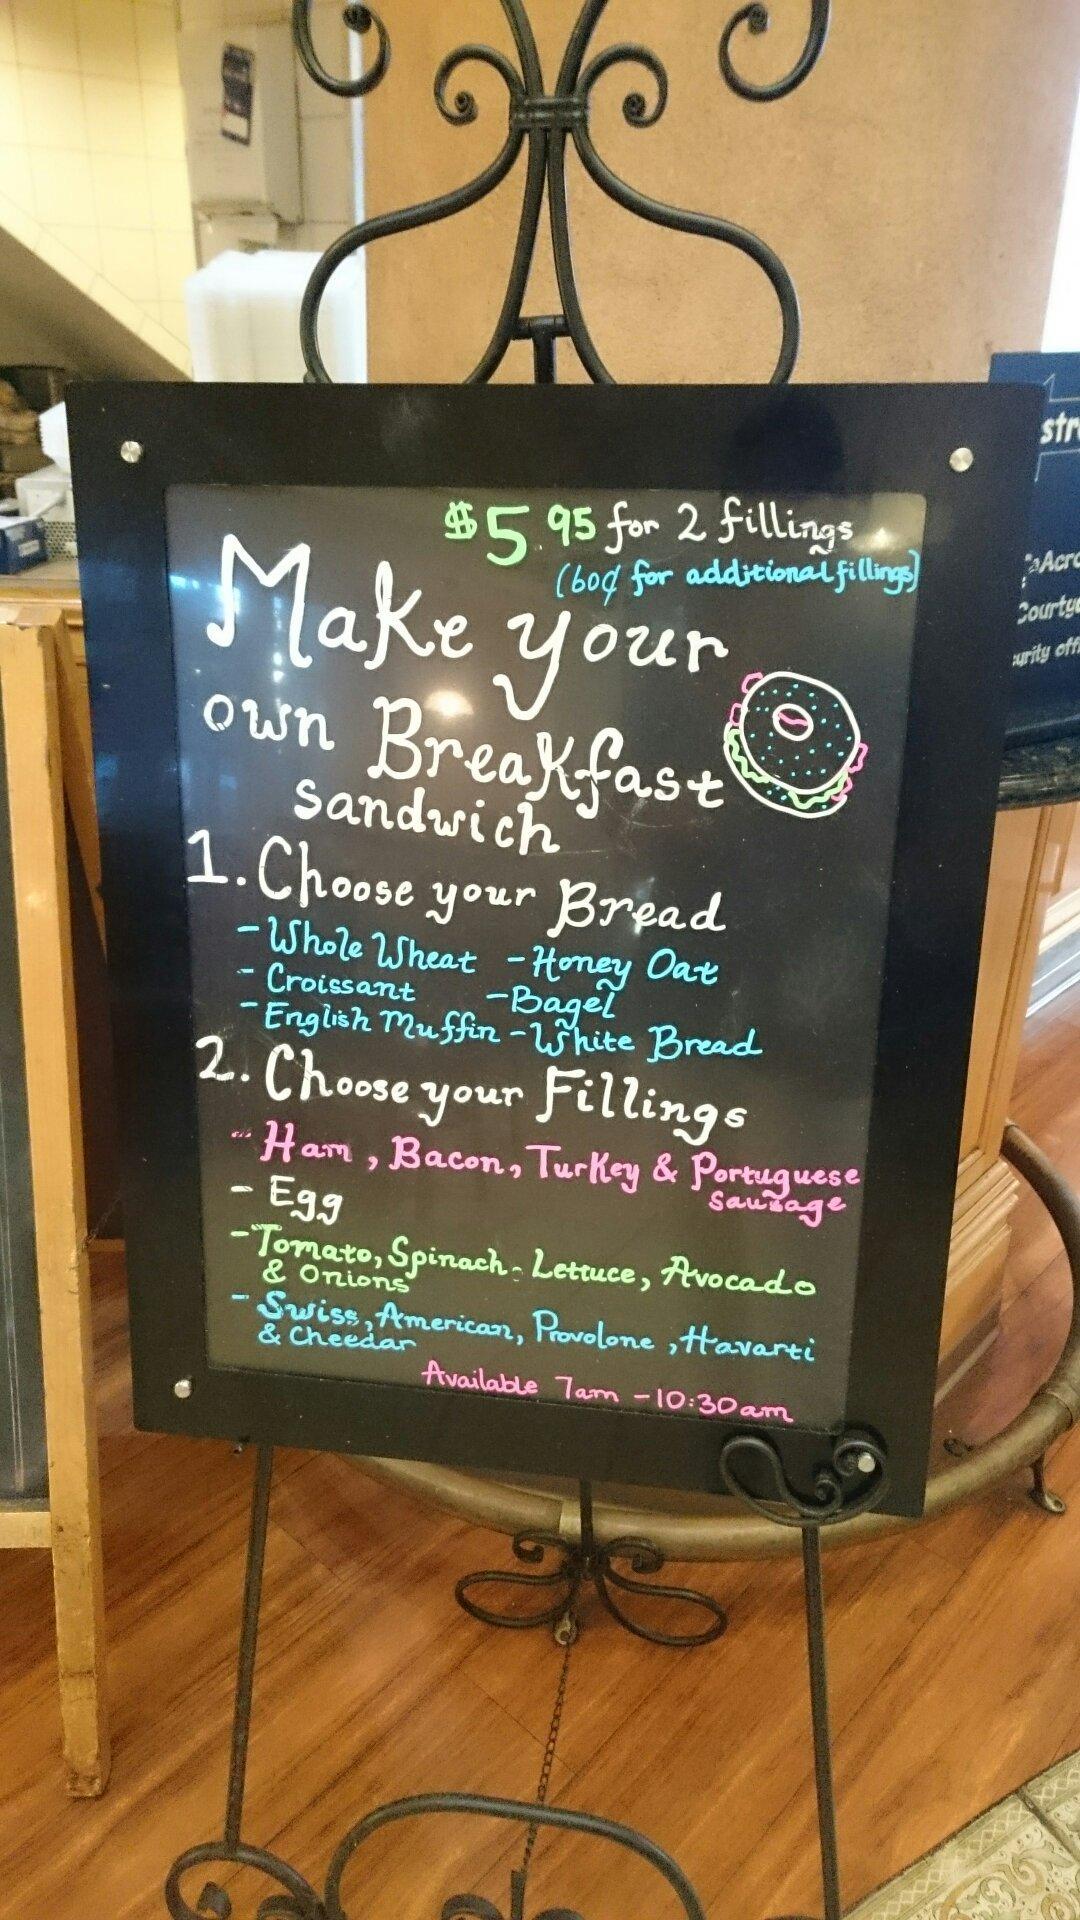 $5.95 for 2 fillings
(60¢ for additional fillings)
Make your
own Breakfast
sandwich
1. Choose your Bread
- Whole Wheat - Honey Oat
- Croissant - Bagel
- English Muffin - White Bread
2. Choose your Fillings
- Ham, Bacon, Turkey & Portuguese
sausage
- Egg
- Tomato, Spinach, Lettuce, Avocado
& Onions
- Swiss, American, Provolone, Havarti
& Cheedar
Available 7am - 10:30am